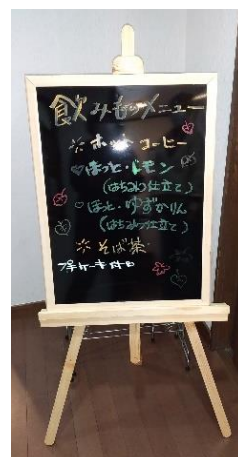 飲みものメニュー
※ ホットコーヒー
♡ ほっと・レモン
(はちみつ仕立て)
♡ ほっと・ゆずかりん
(はちみつ仕立て)
※ そば茶
プチケーキ付